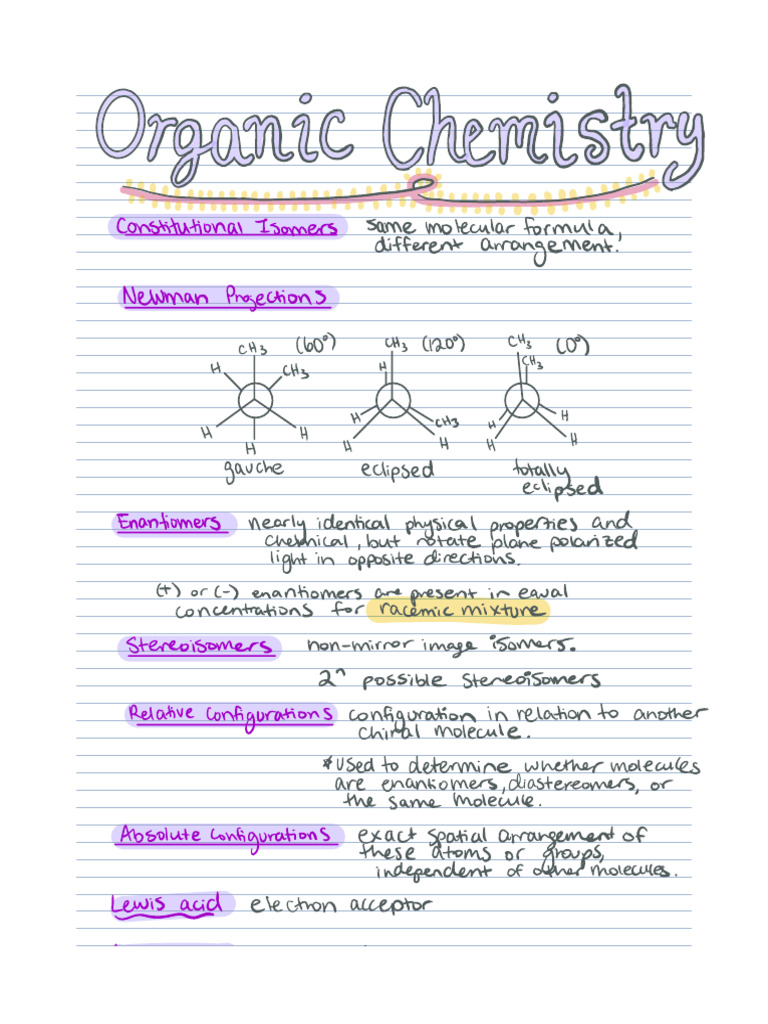 Organic Chemistry
Constitutional Isomers same molecular formula,
different arrangement.
Newman Projections
CH3 (60°) CH3 (120°) CH3 (0°)
H CH3 H CH3
H H H CH3 H H
H H H H H
gauche eclipsed totally
eclipsed
Enantiomers nearly identical physical properties and
chemical, but rotate plane polarized
light in opposite directions.
(+) or (-) enantiomers are present in equal
concentrations for racemic mixture
Stereoisomers non-mirror image isomers.
2ⁿ possible stereoisomers
Relative Configurations configuration in relation to another
chiral molecule.
*Used to determine whether molecules
are enantiomers, diastereomers, or
the same molecule.
Absolute Configurations exact spatial arrangement of
these atoms or groups,
independent of other molecules.
Lewis acid electron acceptor